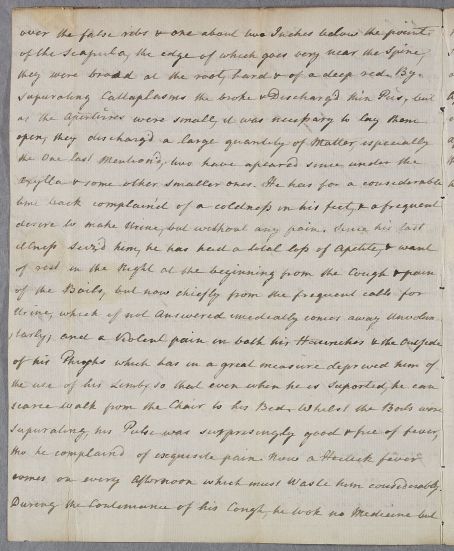 over the false ribs & one about two Inches below the point
of the Scapula, the edge of which goes very near the Spine,
they were broad at the root, hard & of a deep red. By
Supurating Cattaplasms the broke & Discharg'd thin Pus, but
as the Apertures were small, it was necessary to lay them
open, they discharg'd a large quantity of Matter especially
the One last Mention'd, two have apeared since under the
Axylla & some other smaller ones. He has for a considerable
time back complain'd of a coldness in his feet, & a frequent
desire to make Urine, but without any pain. Since his last
illness Seiz'd him, he has had a total loss of Apetite, & want
of rest in the Night at the beginning from the Cough & pain
of the Boils, but now chiefly from the frequent calls for
Urine, which if not Answered imedically comes away Unvolun
:tarly; and a Violent pain in both his Haunches & the Outside
of his Thighs which has in a great measure deprived him of
the use of his Limbs, so that even when he is Suported, he can
scarce walk from the Chair to his Bed. Whilst the Boils were
supurating, his Pulse was surprisingly good & free of fever,
tho he complain'd of exquisite pain. Now a Hectick fever
comes on every Afternoon which must Waste him considerably.
During the Continuance of his Cough, he took no Medicine but